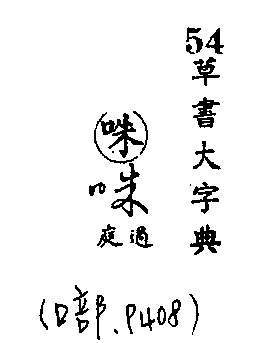 54
草書大字典
咮
咮
過庭
(口部、P408)